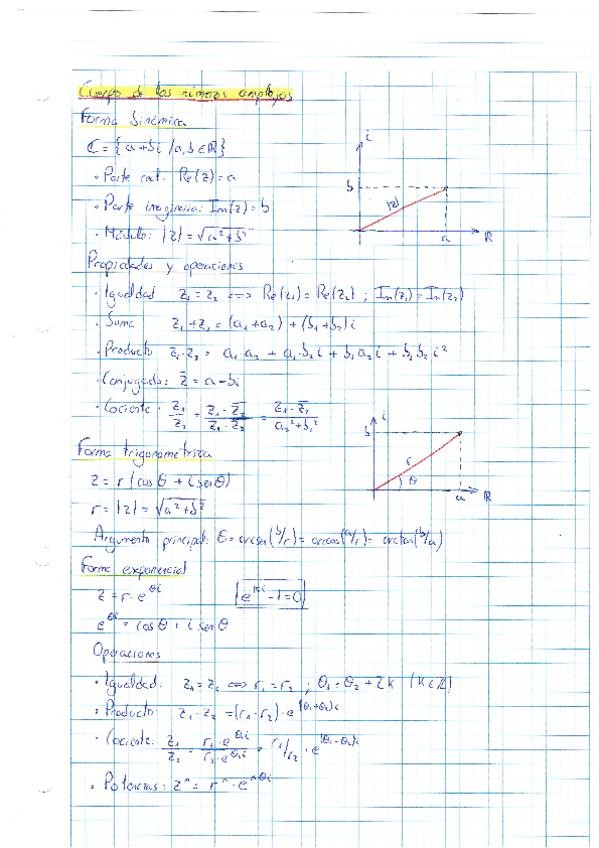 Cuerpo de los números complejos
Forma binómica
ℂ = { a+bi / a,b ∈ ℝ }
· Parte real: Re(z) = a
· Parte imaginaria: Im(z) = b
· Módulo: |z| = √(a²+b²)
i
b
|z|
a
R
Propiedades y operaciones
· Igualdad z₁ = z₂ ⟺ Re(z₁) = Re(z₂) ; Im(z₁) = Im(z₂)
· Suma z₁ + z₂ = (a₁+a₂) + (b₁+b₂)i
· Producto z₁·z₂ = a₁·a₂ + a₁·b₂i + b₁a₂i + b₁b₂i²
· Conjugado: z̄ = a-bi
· Cociente: z₁/z₂ = z₁·z̄₂/z₂·z̄₂ = z₁·z̄₂/a₂²+b₂²
i
b
r
θ
a
R
Forma trigonométrica
z = r (cos θ + i sen θ)
r = |z| = √(a²+b²)
Argumento principal: θ = arcsen(b/r) = arccos(a/r) = arctan(b/a)
Forma exponencial
z = r·e^θi
e^θi = cos θ + i sen θ
Operaciones
· Igualdad: z₁ = z₂ ⟺ r₁ = r₂ ; θ₁ = θ₂ + 2k (k∈ℤ)
· Producto: z₁·z₂ = (r₁·r₂)·e^(θ₁+θ₂)i
· Cociente: z₁/z₂ = r₁·e^θ₁i/r₂·e^θ₂i = r₁/r₂ · e^(θ₁-θ₂)i
· Potencias: zⁿ = rⁿ·e^nθi